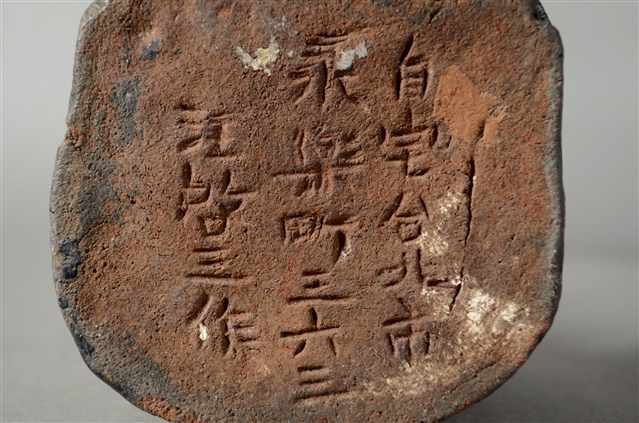 自宅台北市
永楽町三六三
江啓三作